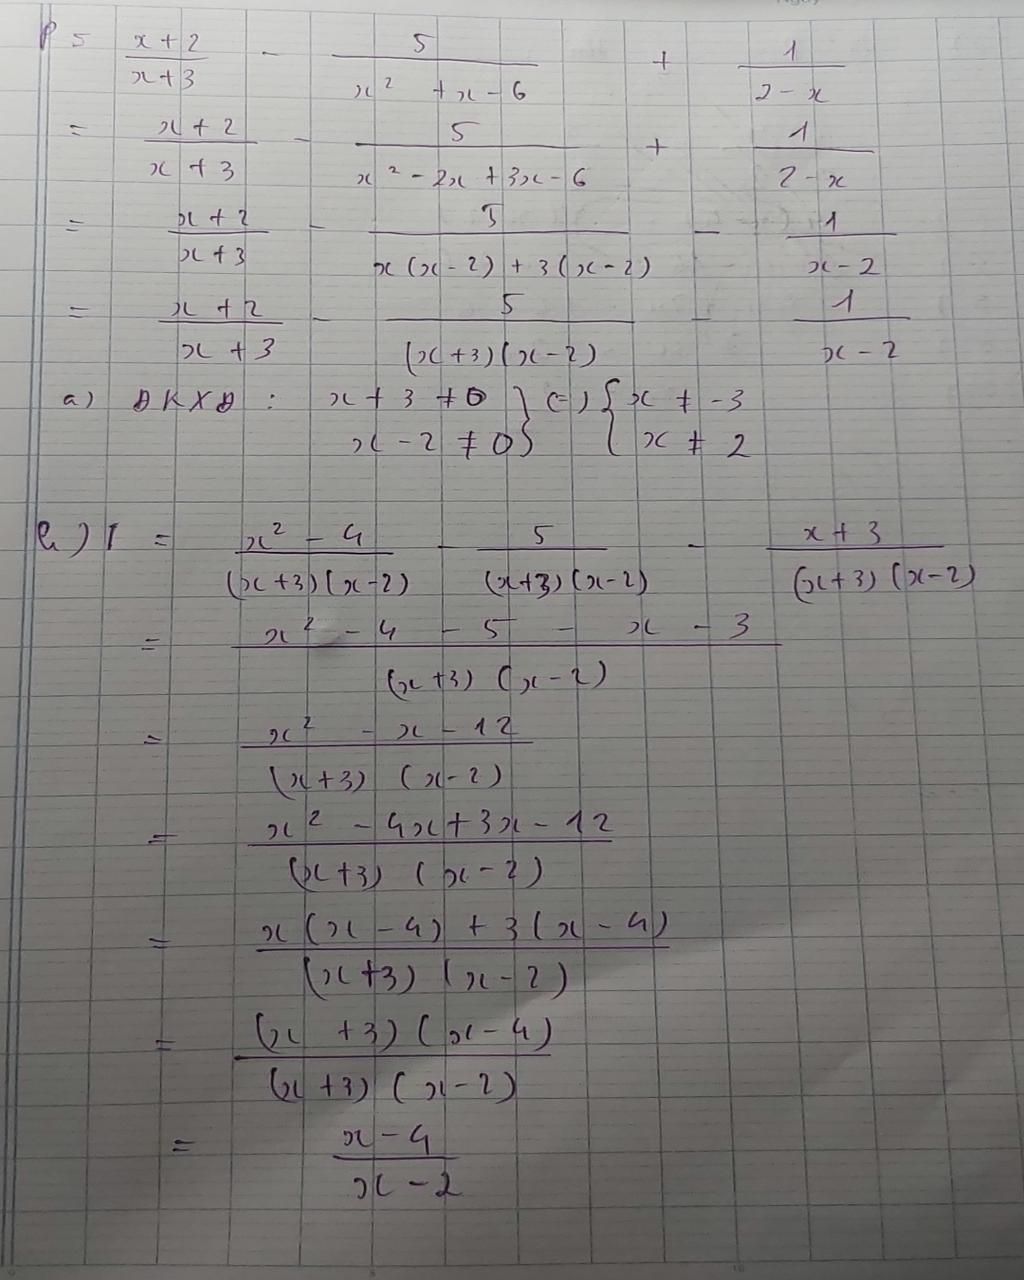 P = \frac{x+2}{x+3} - \frac{5}{x^2+x-6} + \frac{1}{2-x}
= \frac{x+2}{x+3} - \frac{5}{x^2-2x+3x-6} + \frac{1}{2-x}
= \frac{x+2}{x+3} - \frac{5}{x(x-2)+3(x-2)} - \frac{1}{x-2}
= \frac{x+2}{x+3} - \frac{5}{(x+3)(x-2)} - \frac{1}{x-2}
a) ĐKXĐ : x + 3 ≠ 0 } (=) { x ≠ -3
x - 2 ≠ 0 } { x ≠ 2
b) P = \frac{x^2-4}{(x+3)(x-2)} - \frac{5}{(x+3)(x-2)} - \frac{x+3}{(x+3)(x-2)}
= \frac{x^2-4-5-x-3}{(x+3)(x-2)}
= \frac{x^2-x-12}{(x+3)(x-2)}
= \frac{x^2-4x+3x-12}{(x+3)(x-2)}
= \frac{x(x-4)+3(x-4)}{(x+3)(x-2)}
= \frac{(x+3)(x-4)}{(x+3)(x-2)}
= \frac{x-4}{x-2}